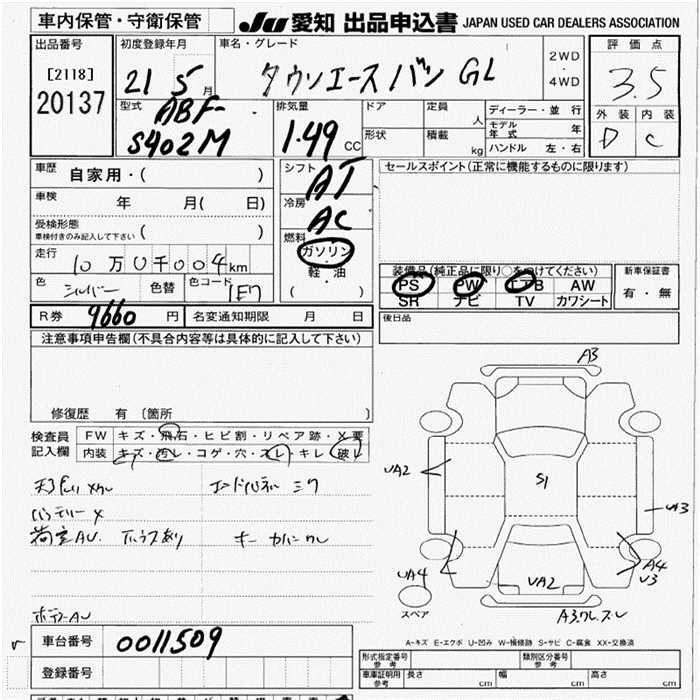 車内保管・守衛保管 JU 愛知 出品申込書 JAPAN USED CAR DEALERS ASSOCIATION
出品番号 初度登録年月 車名・グレード 2WD ・ 4WD 評価点
[2118] 21 5月 タウンエースバン GL 3.5
20137 型式 ABF- 排気量 ドア 定員 人 ディーラー・並行 外装 内装
S402M 1.49 CC 形状 積載 kg モデル年式 年 D C
ハンドル 左・右
車歴 自家用・( ) シフト AT セールスポイント(正常に機能するものに限ります)
車検 年 月( 日) 冷房 AC
受検形態 ( )
車検付きのみ記入して下さい
燃料 ガソリン
走行 10万0千004km 軽・油
( )
装備品(純正品に限り○をつけてください) 新車保証書
色 シルバー 色替 色コード 1E7 PS PW エアB AW 有・無
SR ナビ TV カワシート
R券 9660円 名変通知期限 月 日 後日品
注意事項申告欄(不具合内容等は具体的に記入して下さい)
修復歴 有 〔箇所 〕
検査員 FW キズ・飛石・ヒビ割・リペア跡・X要
記入欄 内装 キズ・汚レ・コゲ・穴・スレ・キレ・破レ
バッテリーX
A3
UA2
S1
U3
UA4
UA2
A4
U3
スペア
A-キズ E-エクボ U-凹み W-補修跡 S-サビ C-腐食 XX-交換済
車台番号 0011509
登録番号
形式指定番号 参考 類別区分番号 参考
車庫証明用 参考 長さ cm 幅 cm 高さ cm